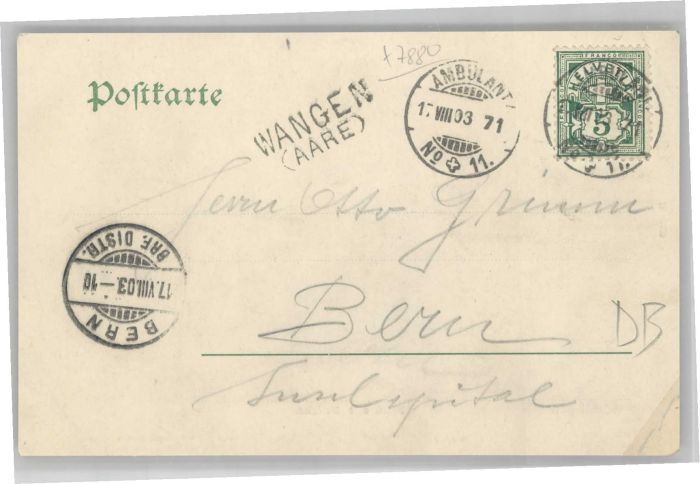 +7880
Postkarte
WANGEN
(AARE)
AMBULANT
17.VIII.03 71
No 11.
HELVETIA
FRANCO
5
No 11.
Herrn Otto Grimm
BRF. DISTR.
17.VIII.03–10
BERN
Bern
DB
Inselspital